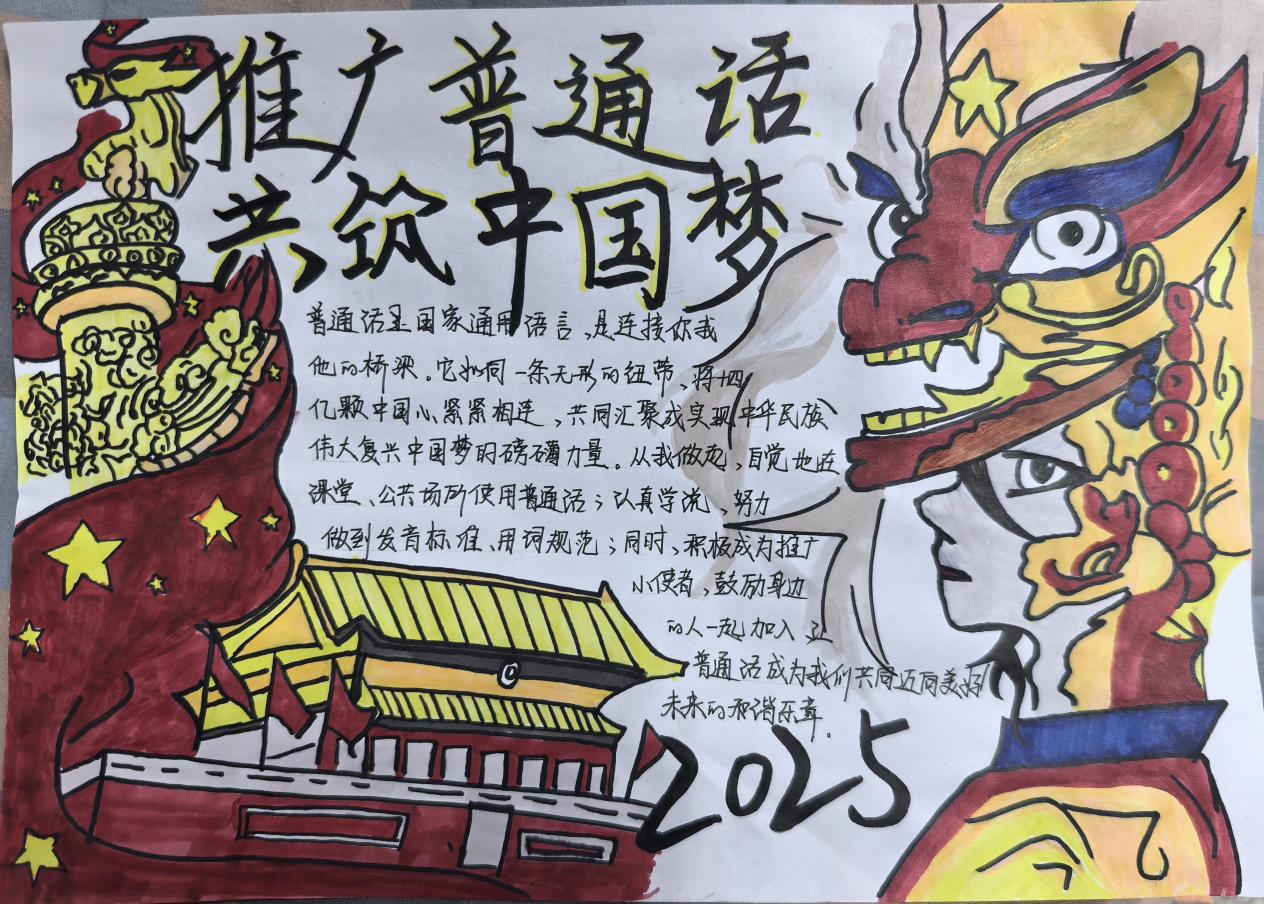 推广普通话
共筑中国梦
普通话是国家通用语言,是连接你我
他的桥梁。它如同一条无形的纽带,将十四
亿颗中国心紧紧相连,共同汇聚成实现中华民族
伟大复兴中国梦的磅礴力量。从我做起,自觉地在
课堂、公共场所使用普通话;认真学说,努力
做到发音标准、用词规范;同时,积极成为推广
小使者,鼓励身边
的人一起加入 让
普通话成为我们共同迈向美好
未来的和谐乐章。
2025